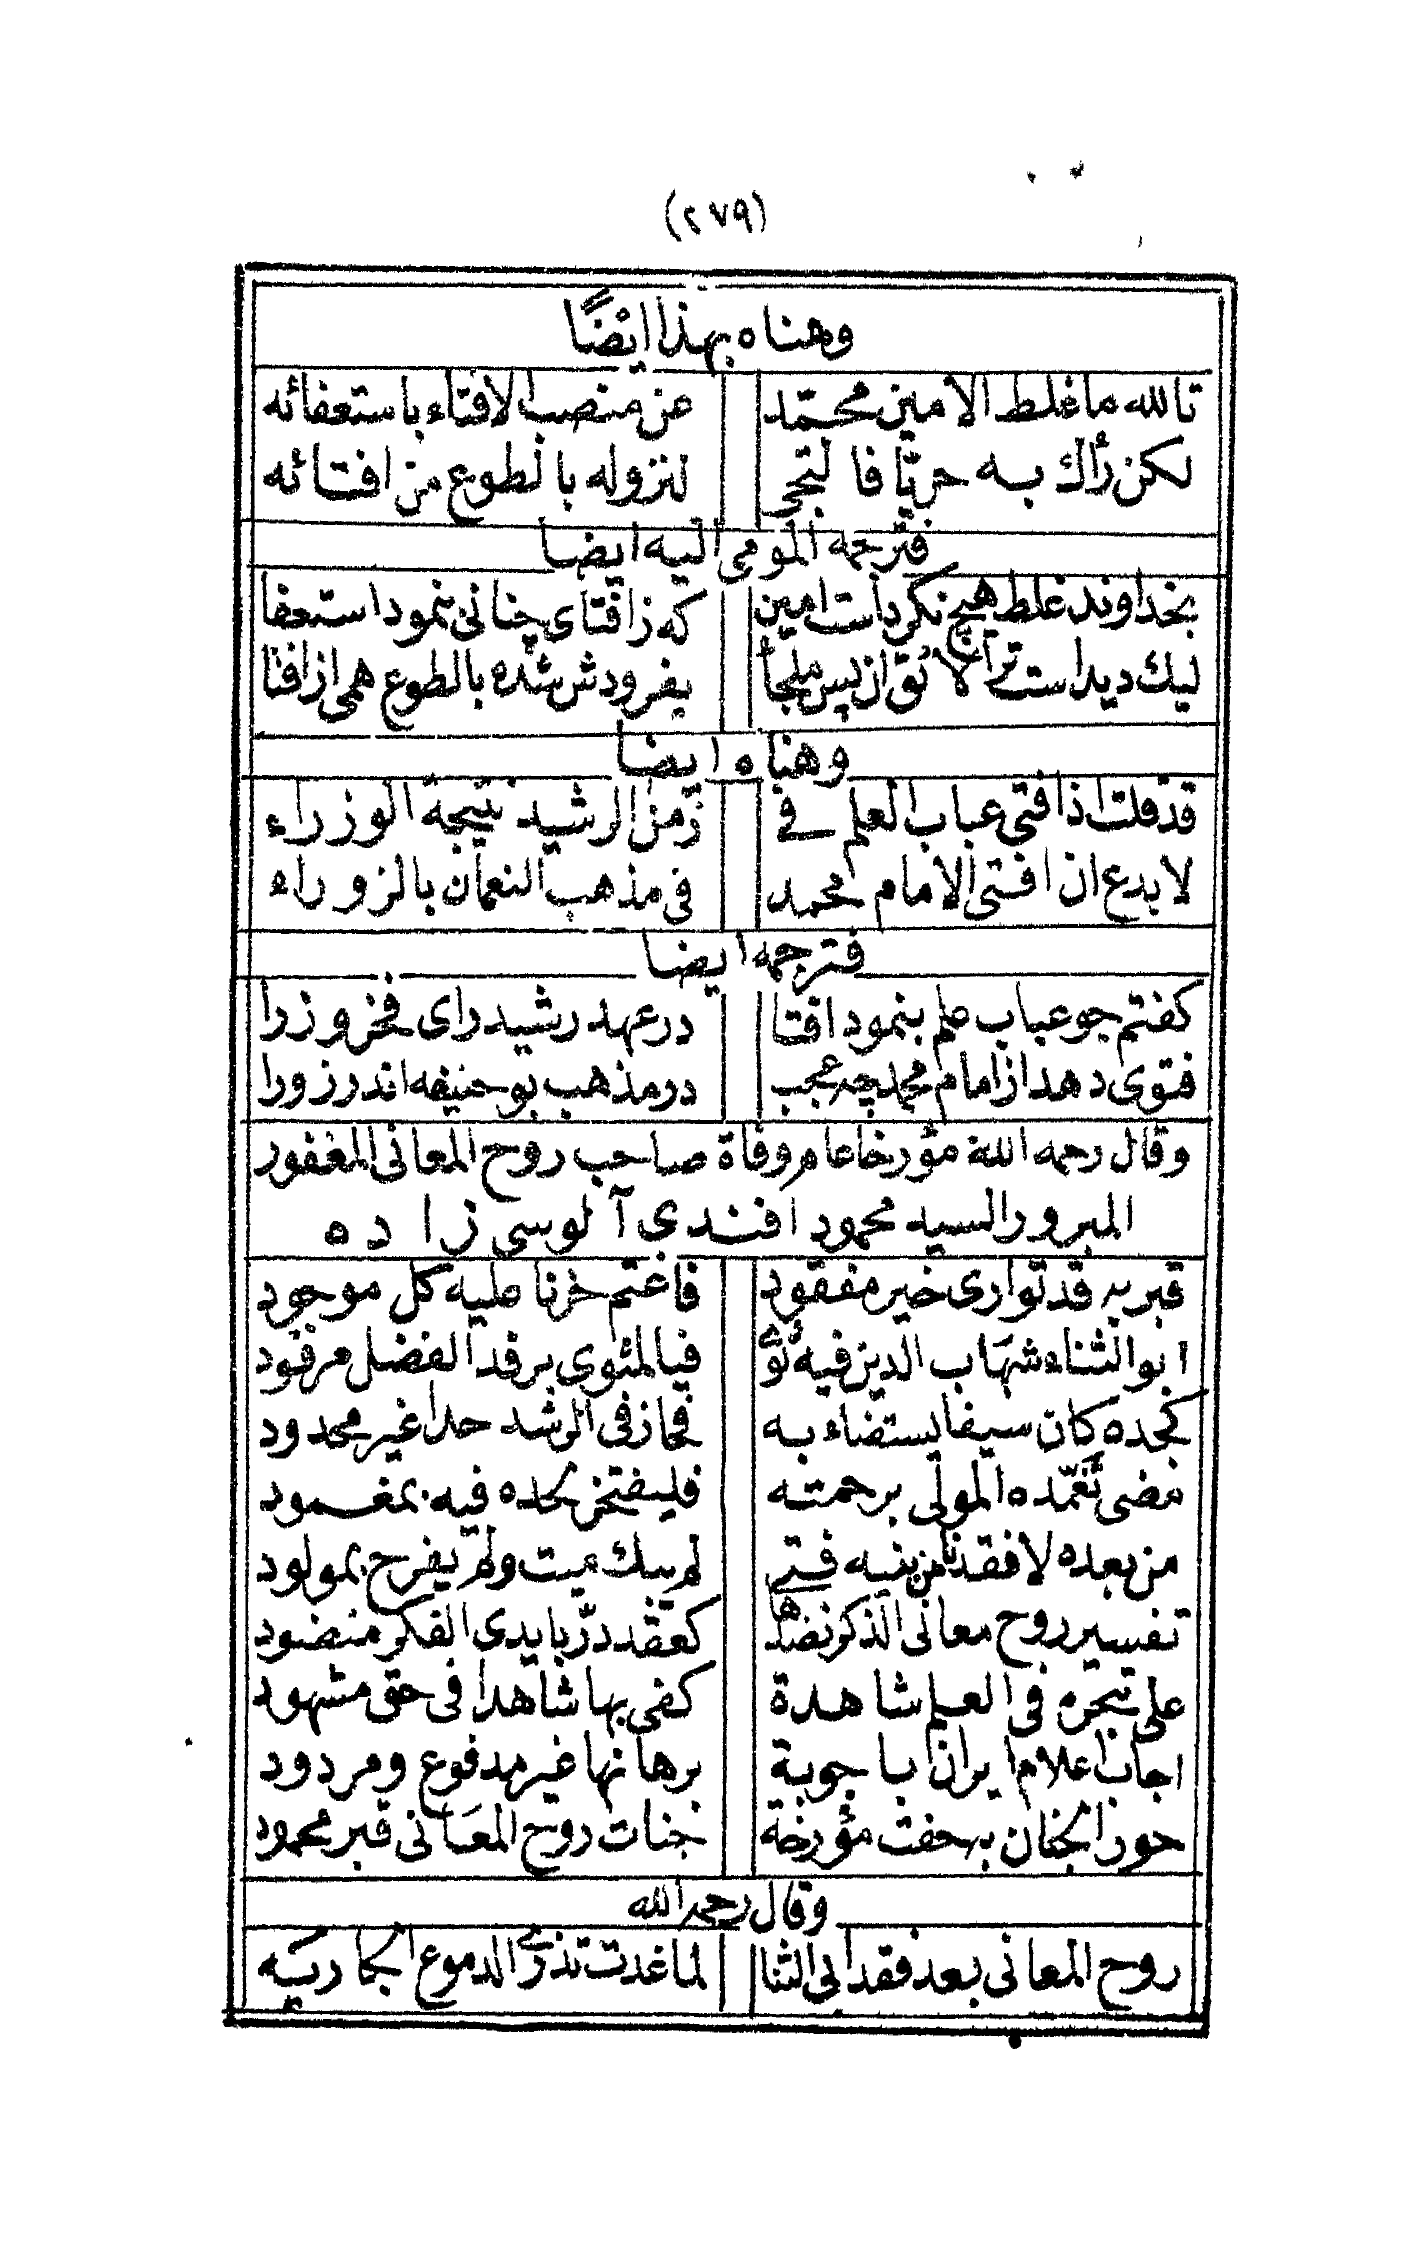 (٢٧٩)
وهناه بهذا ايضًا
تالله ما غلط الامين محمّد عن منصب الافتاء باستعفائه
لكن رأك به حريّا فالتجى لنزوله بالطوع من افتائه
فترجمه المومى اليه ايضا
بخداوند غلط هيچ نكرداست امين كه زافتاى چنانى بنمود استعفا
ليك ديداست ترا لائق ازپس ملجأ بفرودش شده بالطوع همى ازافتا
وهناه ايضا
قد قلت اذ افتى عباب العلم فى زمن الرشيد نتيجة الوزراء
لابدع ان افتى الامام محمد فى مذهب النعمان بالزوراء
فترجمه ايضا
كفتم جو عباب علم بنمود افتا درعهد رشيد راى فخر وزرا
فتوى دهد از امام محمد چه عجب درمذهب بوحنيفه اندر زورا
وقال رحمه الله مؤرخا عام وفاة صاحب روح المعانى المغفور
المبرور السيد محمود افندى آلوسى زاده
قبر به قد توارى خير مفقود فاغتم حزنا عليه كل موجود
ابو الثناء شهاب الدين فيه ثوى فيالمثوى برفد الفضل مرفود
كجده كان سيفا يستضاء به فحاز فى الرشد حدا غير محدود
مضى تغمّده المولى برحمته فليفتخر لحده فيه بمغمود
من بعده لا فقدنا من بنيه فتى لم يبك ميت ولم يفرح بمولود
تفسير روح معانى الذكر نضدها كعقد درّ بايدى الفكر منضود
على تبحره فى العلم شاهدة كفى بها شاهدا فى حق مشهود
اجاب اعلام ايران باجوبة برهانها غير مدفوع ومردود
حور الجنان به حفت مؤرخة جنات روح المعانى قبر محمود
وقال رحمه الله
روح المعانى بعد فقد ابى الثنا لما غدت تذرى الدموع الجاريه